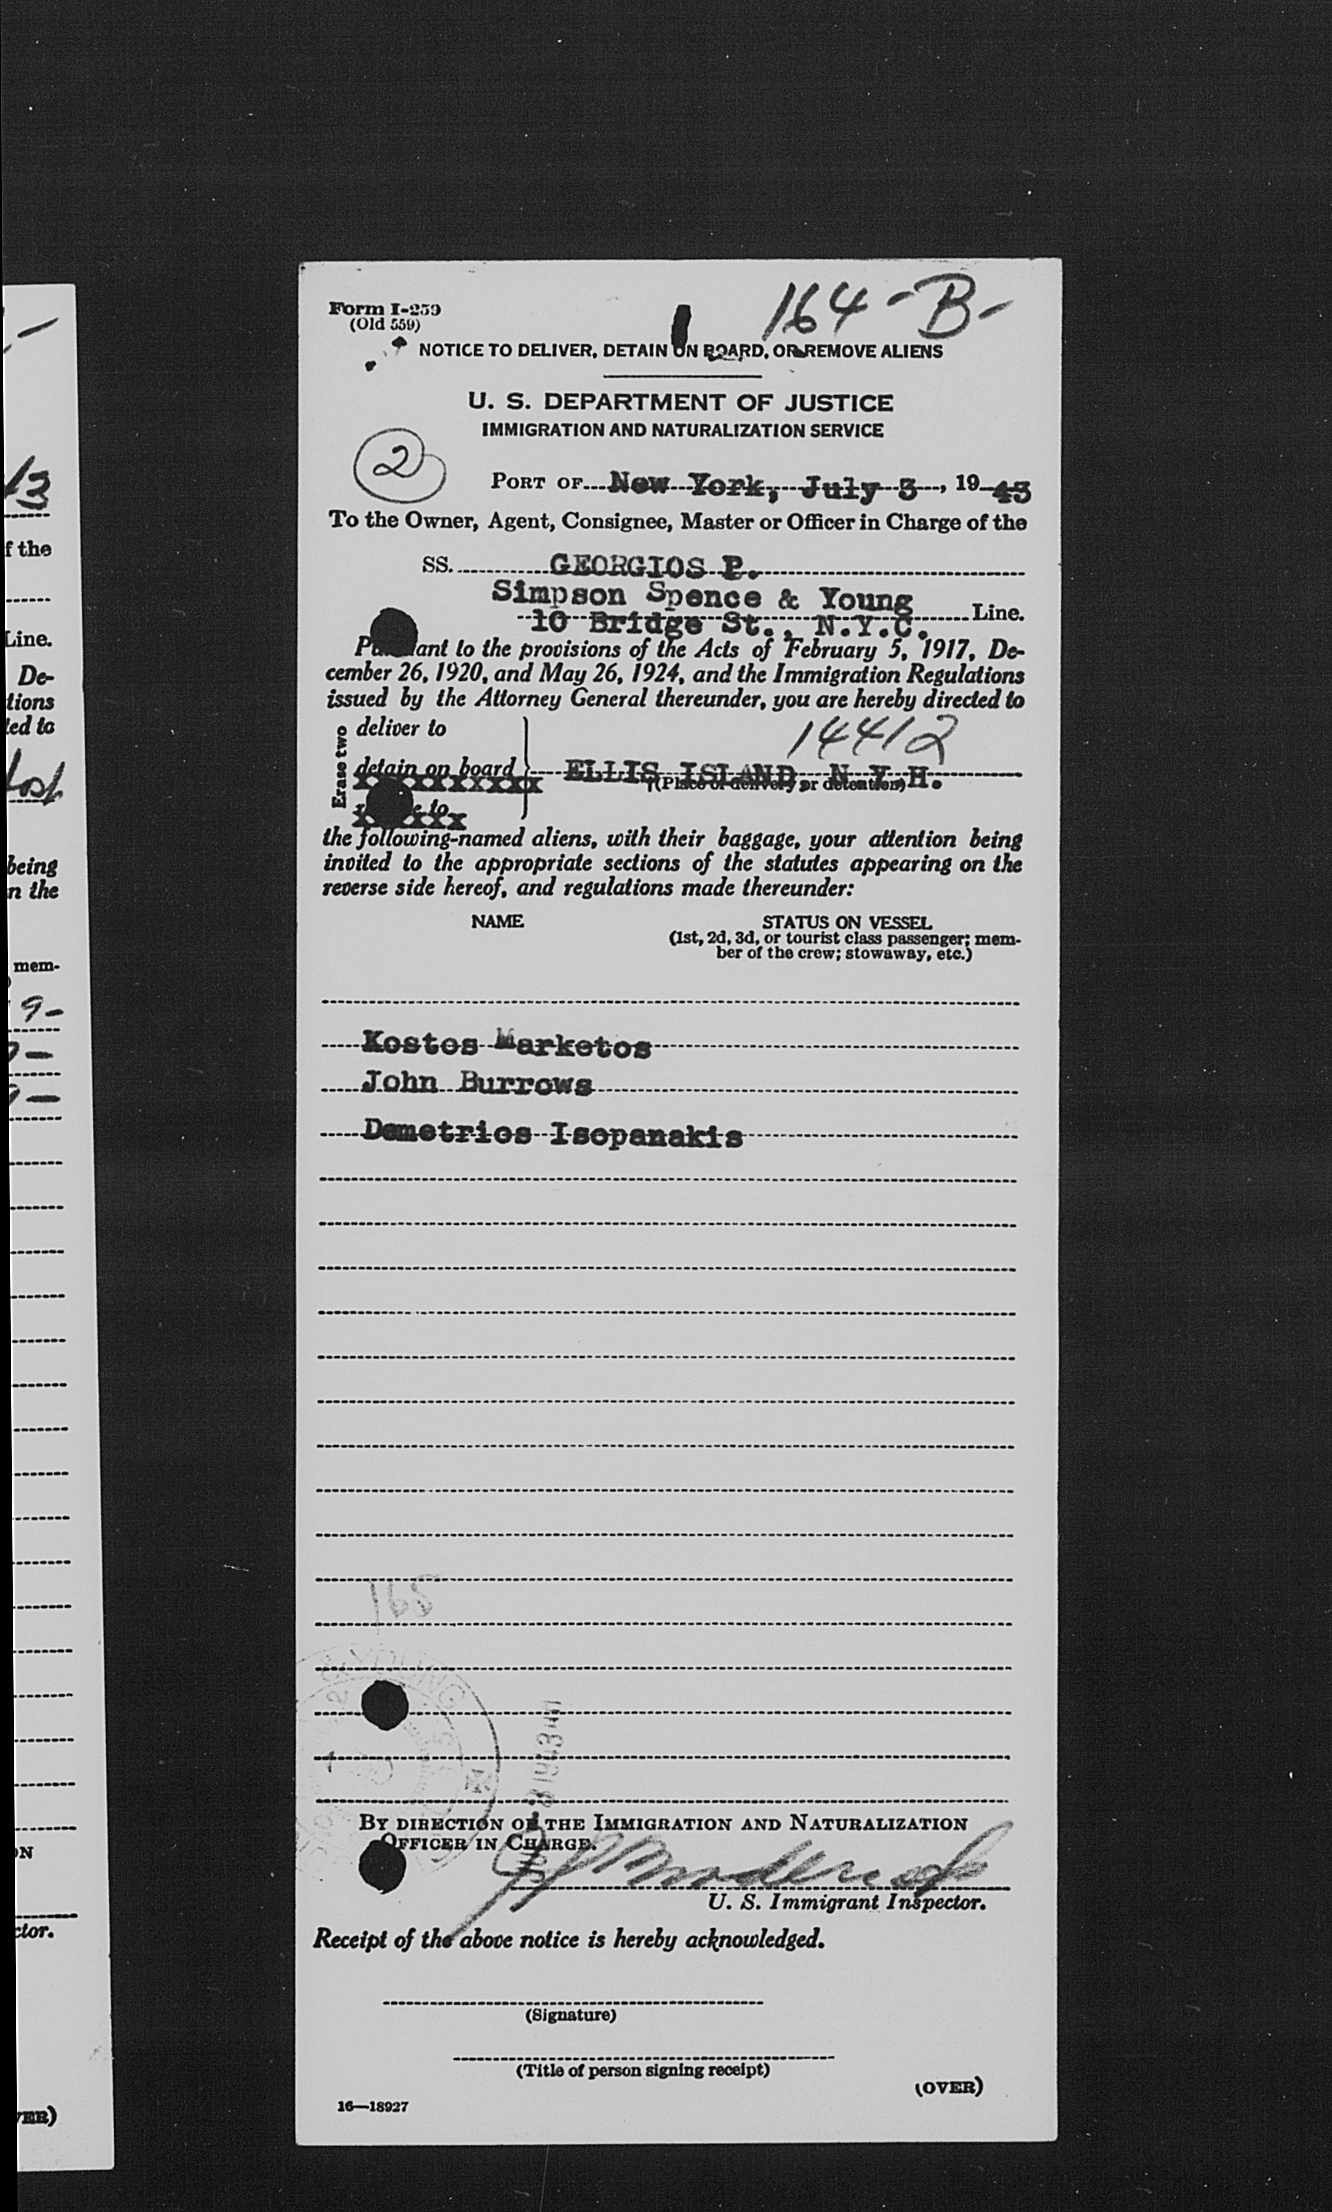 164-B-
Form I-259
(Old 559)
NOTICE TO DELIVER, DETAIN ON BOARD, OR REMOVE ALIENS
U. S. DEPARTMENT OF JUSTICE
IMMIGRATION AND NATURALIZATION SERVICE
2
PORT OF New York, July 3, 1943
To the Owner, Agent, Consignee, Master or Officer in Charge of the
SS. GEORGIOS P.
Simpson Spence & Young
10 Bridge St., N.Y.C. Line.
Pursuant to the provisions of the Acts of February 5, 1917, De-
cember 26, 1920, and May 26, 1924, and the Immigration Regulations
issued by the Attorney General thereunder, you are hereby directed to
Erase two
deliver to
14412
detain on board
ELLIS ISLAND, N.Y.H.
(Place of delivery or detention)
the following-named aliens, with their baggage, your attention being
invited to the appropriate sections of the statutes appearing on the
reverse side hereof, and regulations made thereunder:
NAME
STATUS ON VESSEL
(1st, 2d, 3d, or tourist class passenger; mem-
ber of the crew; stowaway, etc.)
Kostos Marketos
John Burrows
Demetrios Isopanakis
165
BY DIRECTION OF THE IMMIGRATION AND NATURALIZATION
OFFICER IN CHARGE.
U. S. Immigrant Inspector.
Receipt of the above notice is hereby acknowledged.
(Signature)
(Title of person signing receipt)
(OVER)
16—18927
f the
Line.
De-
tions
ed to
being
n the
mem-
9-